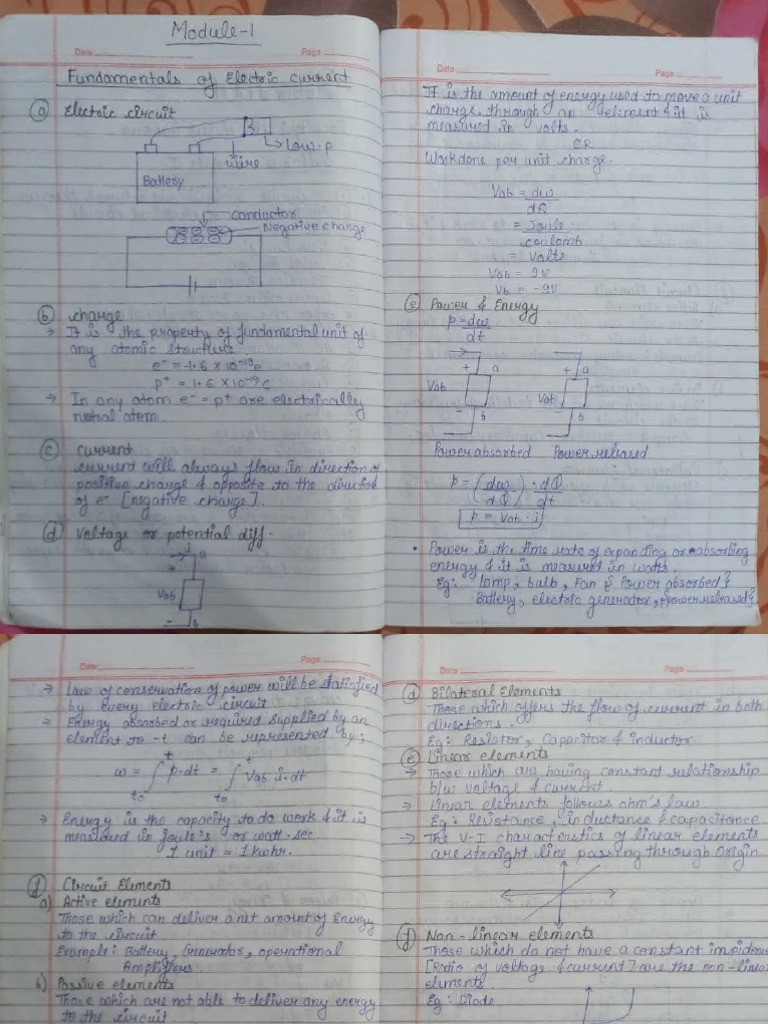 Module-1
Date
Page
Fundamentals of Electric current
(a) Electric circuit
B
→ Low.p
wire
Battery
conductor
Negative charge
(b) charge
→ It is the property of fundamental unit of
any atomic structure
e⁻ = -1.6 × 10⁻¹⁹c
p⁺ = 1.6 × 10⁻¹⁹C
→ In any atom e⁻ = p⁺ are electrically
nutral atom.
(c) current
current will always flow in direction of
positive charge & opposite to the direction
of e⁻ [negative charge].
(d) Voltage or potential diff.
i a
+
Vab
- b
Date
Page
It is the amount of energy used to move a unit
charge through an element & it is
measured in volts.
OR
Workdone per unit charge.
Vab = dw
dQ
= Joule
coulomb
= Volts
Vab = 9V
Vb = -9V
(e) Power & Energy
p = dw
dt
+ a + a
Vab Vab
- b - b
Power absorbed Power released
p = (dw/dQ) · dQ/dt
p = Vab · i
• Power is the time rate of expanding or absorbing
energy & it is measured in watts.
Eg: lamp, bulb, Fan { Power absorbed }
Battery, electric generator, {power released}
Date
Page
→ Law of conservation of power will be statisfied
by every electric circuit
→ Energy absorbed or required supplied by an
element to -t can be represented by;
w = ∫ₜ₀ᵗ p·dt = ∫ₜ₀ᵗ Vab. i. dt
→ Energy is the capacity to do work & it is
measured in joule's or watt. sec.
1 unit = 1 kwhr.
(f) Circuit Elements
a) Active elements
Those which can deliver a net amount of Energy
to the circuit
Example: Battery, Generator, operational
Amplifiers
b) Passive elements
Those which are not able to deliver any energy
to the circuit
Date
Page
(d) Bilateral Elements
Those which offers the flow of current in both
directions.
Eg: Resistor, Capacitor & inductor
(e) Linear elements
→ Those which are having constant relationship
b/w voltage & current.
→ Linear elements follows ohm's law.
Eg: Resistance, inductance & capacitance
→ The V-I charactersitics of linear elements
are straight line passing through origin
(f) Non-linear elements
Those which do not have a constant impidenc
[Ratio of voltage & current] are the non-linear
elements.
Eg: Diode